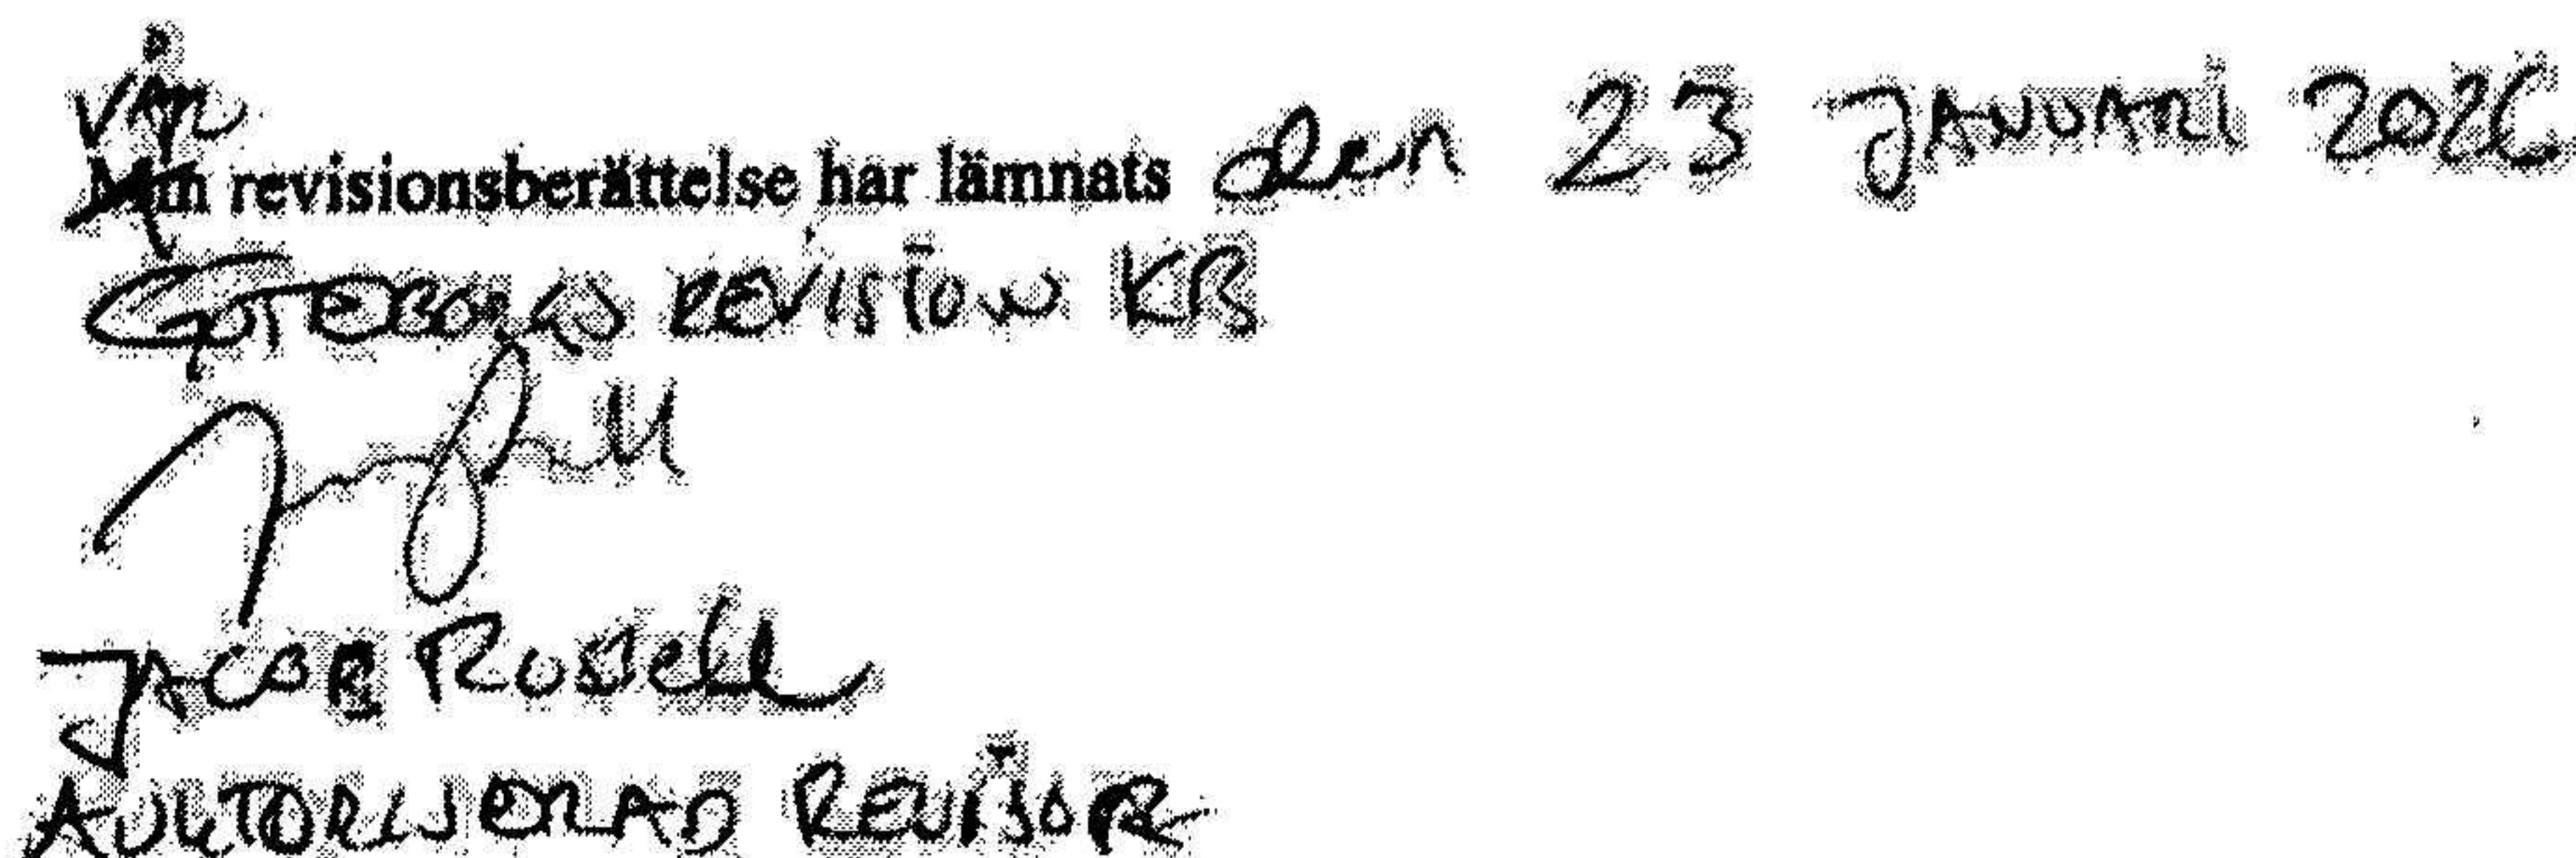 Vår
Min revisionsberättelse har lämnats den 23 JANUARI 2026
GÖTEBORGS REVISION KB
JACOB Rosell
AUKTORISERAD REVISOR